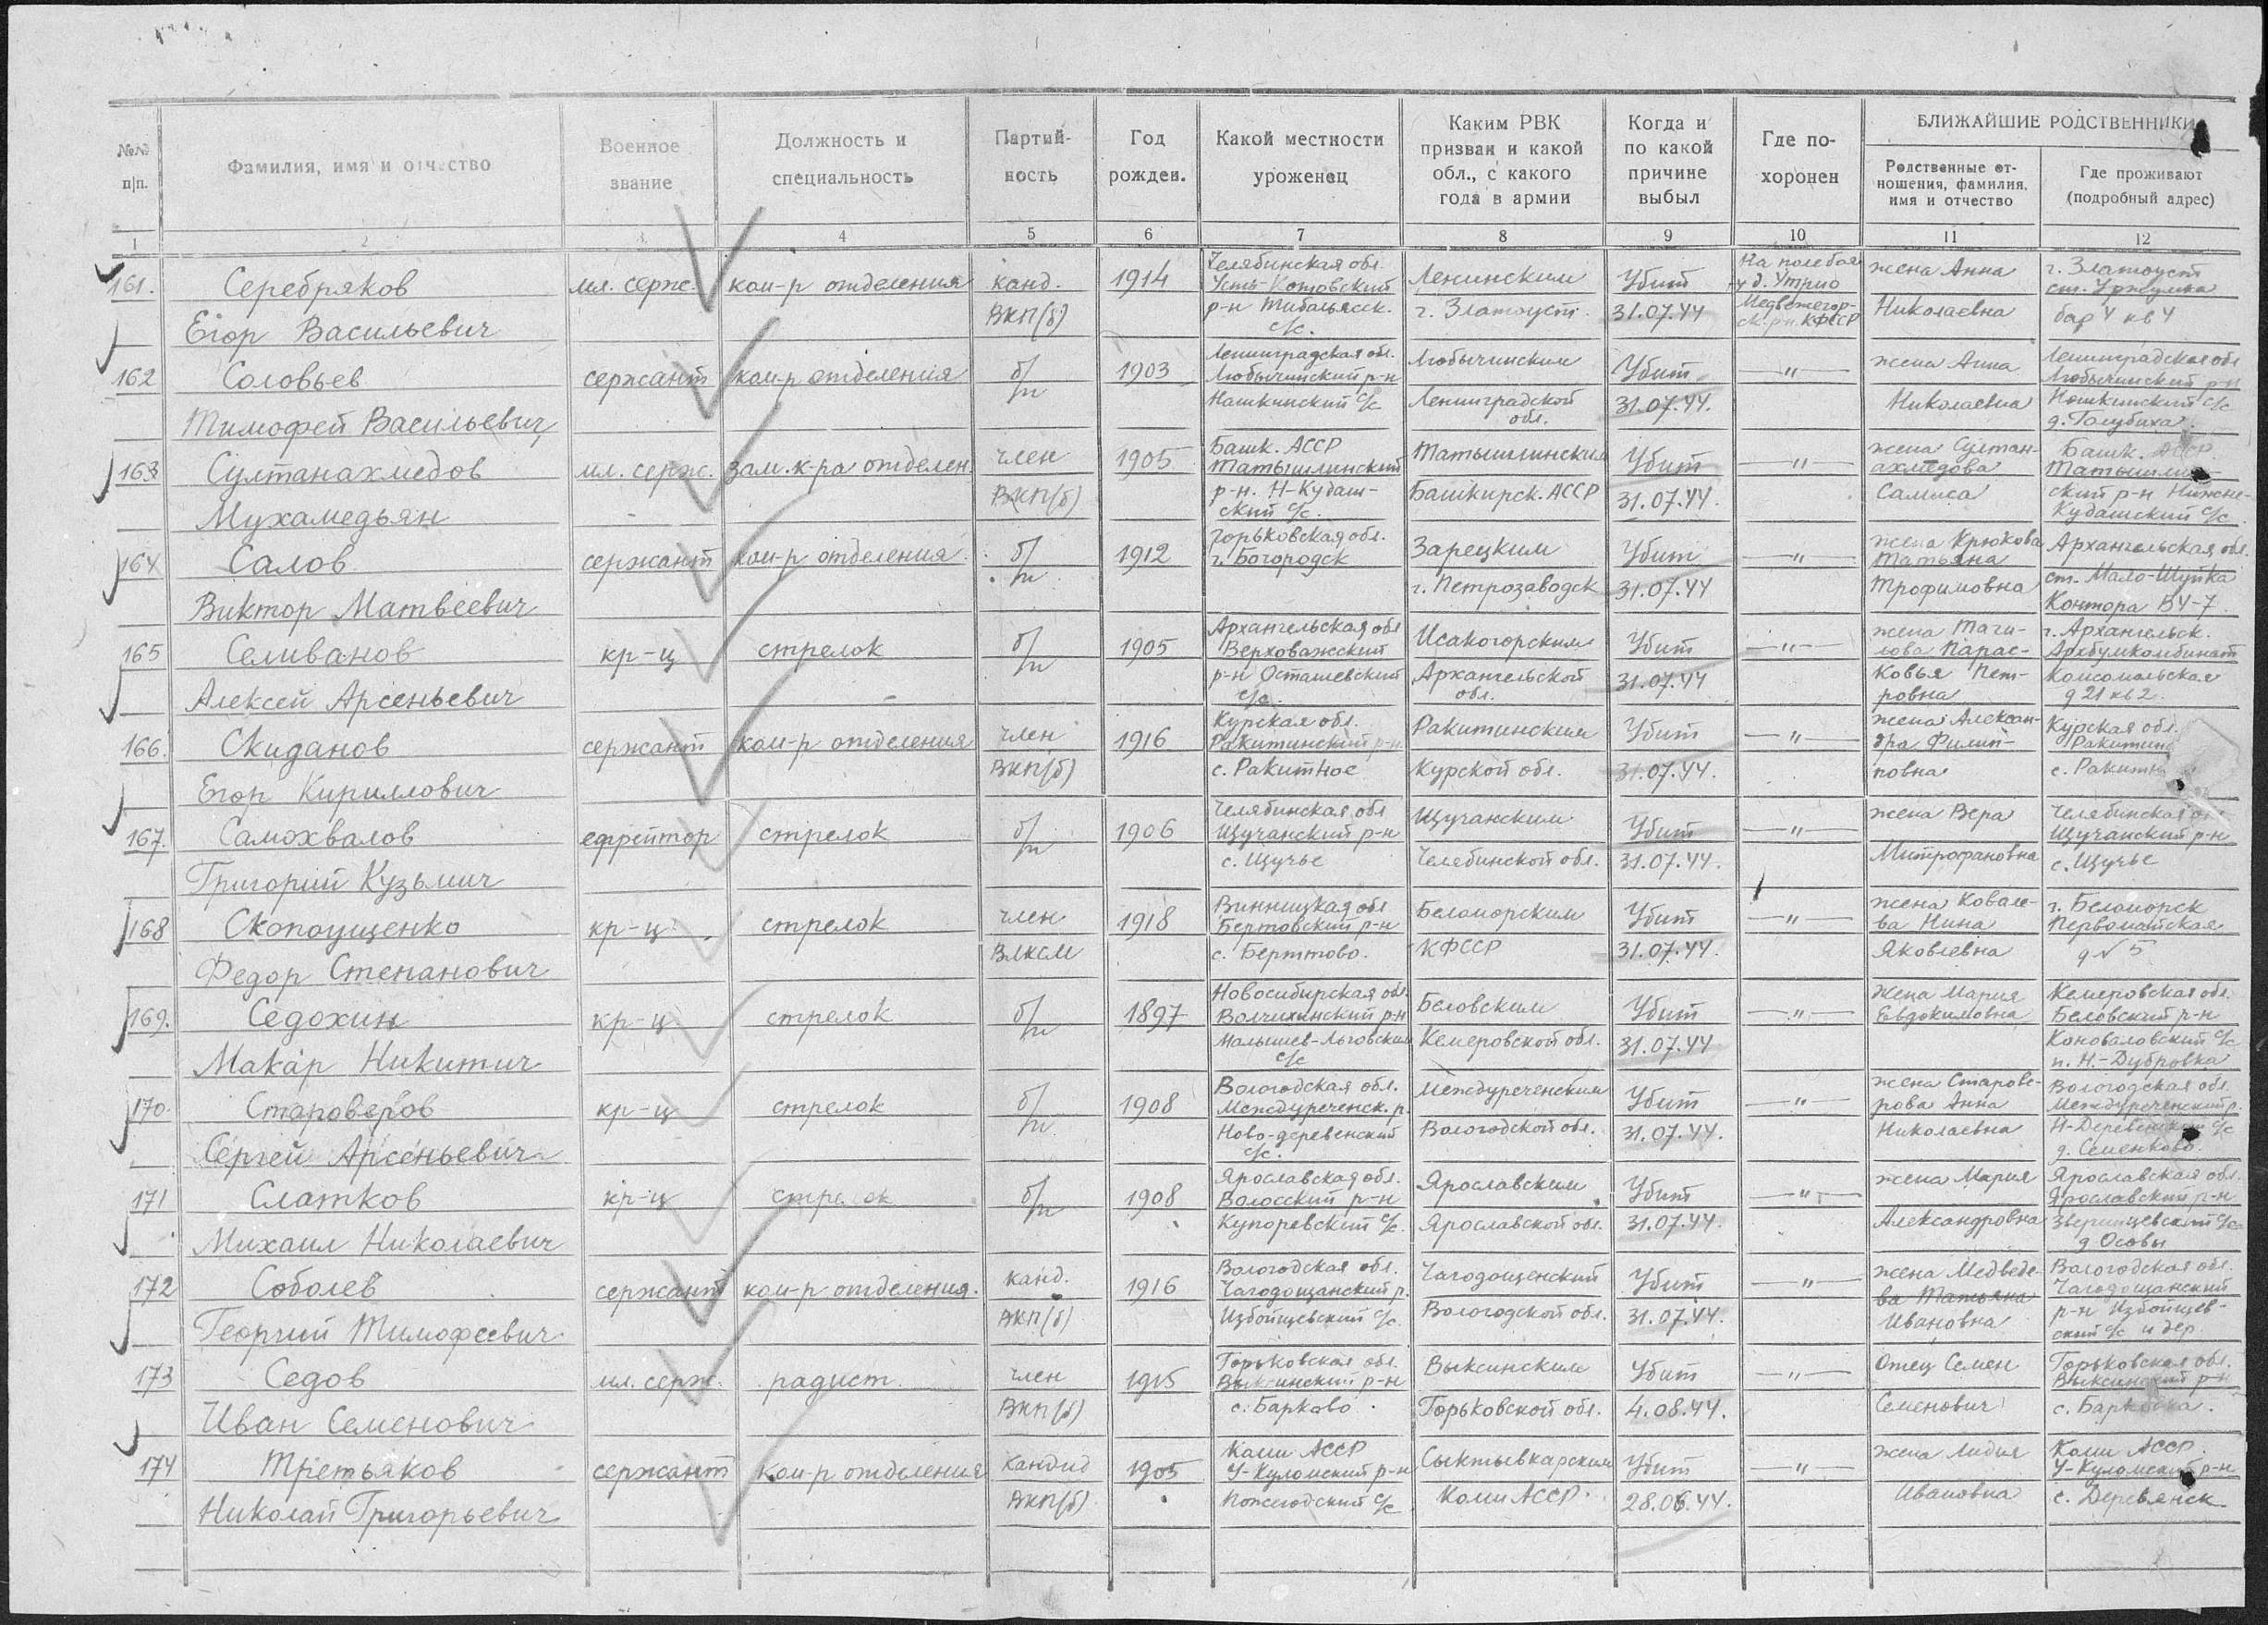 №№ п|п.
Фамилия, имя и отчество
Военное звание
Должность и специальность
Партий-ность
Год рожден.
Какой местности уроженец
Каким РВК призван и какой обл., с какого года в армии
Когда и по какой причине выбыл
Где по-хоронен
БЛИЖАЙШИЕ РОДСТВЕННИКИ
Родственные от-ношения, фамилия, имя и отчество
Где проживают (подробный адрес)
1 2 3 4 5 6 7 8 9 10 11 12
161. Серебряков мл. серж. ком-р отделения канд. 1914 Челябинская обл. Ленинским Убит На поле боя жена Анна г. Златоуст
Егор Васильевич ВКП(б) р-н с/с. г. Златоуст. 31.07.44 у д. Утрио Медвежегор-ск. р-н. КФССР Николаевна ст. Уржумка бар 4 кв 4
162 Соловьев сержант ком-р отделения б/п 1903 Ленинградская обл. Любытинский р-н Любытинским Убит —"— жена Анна Ленинградская обл
Тимофей Васильевич с/с Ленинградской обл. 31.07.44. Николаевна Любытинский р-н с/с д. Голубиха.
163 Султанахмедов мл. серж. зам. к-ра отделен. член 1905 Башк. АССР Татышлинский Татышлинским Убит —"— жена Султан-ахмедова Башк. АССР.
Мухамедьян ВКП(б) р-н. Н-Кудаш-ский с/с. Башкирск. АССР 31.07.44. Татышлин-ский р-н Нижне-Кудашский с/с.
164 Салов сержант ком-р отделения б/п 1912 Горьковская обл. г. Богородск Зарецким Убит —"— жена Крюкова Татьяна Архангельская обл.
Виктор Матвеевич г. Петрозаводск 31.07.44 Трофимовна ст. Мало-Шуйка Контора ВЧ-7.
165 Селиванов кр-ц стрелок б/п 1905 Архангельская обл Верховажский Исакогорским Убит —"— жена г. Архангельск.
Алексей Арсеньевич р-н Осташевский с/с. Архангельской обл. 31.07.44 Парас-ковья Пет-ровна Архбумкомбинат Комсомольская д 21 кв 2.
166. Скиданов сержант ком-р отделения член 1916 Курская обл. Ракитинский р-н Ракитинским Убит —"— жена Алексан-дра Филип- Курская обл.
Егор Кириллович ВКП(б) с. Ракитное Курской обл. 31.07.44. повна с.
167. Самохвалов ефрейтор стрелок б/п 1906 Челябинская обл Щучанский р-н Щучанским Убит —"— жена Вера Челябинская Щучанский р-н
Григорий Кузьмич с. Щучье Челебинской обл. 31.07.44. Митрофановна с. Щучье
168 Скопоущенко кр-ц стрелок член 1918 Винницкая обл Беломорским Убит —"— жена Ковале-ва Нина г. Беломорск Первомайская
Федор Степанович ВЛКСМ КФССР 31.07.44. Яковлевна д № 5
169. Седохин кр-ц стрелок б/п 1897 Новосибирская обл. Волчихинский р-н Беловским Убит —"— жена Мария Евдокимовна Кемеровская обл. Беловский р-н
Макар Никитич с/с Кемеровской обл. 31.07.44 Коноваловский с/с п. Н.-Дубровка
170. Староверов кр-ц стрелок б/п 1908 Вологодская обл. Междуреченск. р. Междуреченским Убит —"— жена Старове-рова Анна Вологодская обл. Междуреченский р.
Сергей Арсеньевич Ново-деревенский с/с. Вологодской обл. 31.07.44. Николаевна Н-Деревенский с/с д. Семенково.
171 Слатков кр-ц стрелок б/п 1908 Ярославская обл. р-н Ярославским Убит —"— жена Мария Ярославская обл. Ярославский р-н
Михаил Николаевич с/с. Ярославской обл. 31.07.44. Александровна с/с д Осовы
172 Соболев сержант ком-р отделения. канд. 1916 Вологодская обл. Чагодощанский р. Чагодощенский Убит —"— жена Медведе-ва Татьяна Вологодская обл. Чагодощанский
Георгий Тимофеевич ВКП(б) Избоищевский с/с. Вологодской обл. 31.07.44. Ивановна р-н Избоищев-ский с/с и дер.
173 Седов мл. серж. радист. член 1915 Горьковская обл. Выксинский р-н Выксинским Убит —"— Отец Семен Горьковская обл. Выксинский р-н
Иван Семенович ВКП(б) с. Барково. Горьковской обл. 4.08.44. Семенович с.
174 Третьяков сержант ком-р отделения кандид 1905 Коми АССР У-Куломский р-н Сыктывкарским Убит —"— жена Лидия Коми АССР. У-Куломский р-н
Николай Григорьевич ВКП(б) Пожегодский с/с Коми АССР. 28.06.44. Ивановна с. Деревянск.